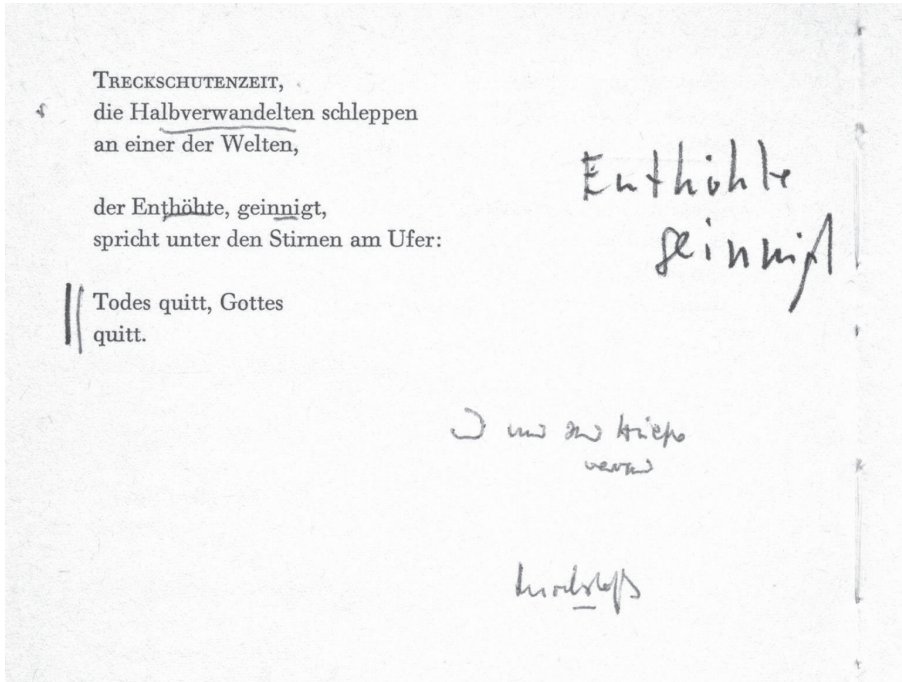 TRECKSCHUTENZEIT,
die Halbverwandelten schleppen
an einer der Welten,
der Enthöhte, geinnigt,
spricht unter den Stirnen am Ufer:
Todes quitt, Gottes
quitt.
Enthöhte
geinnigt